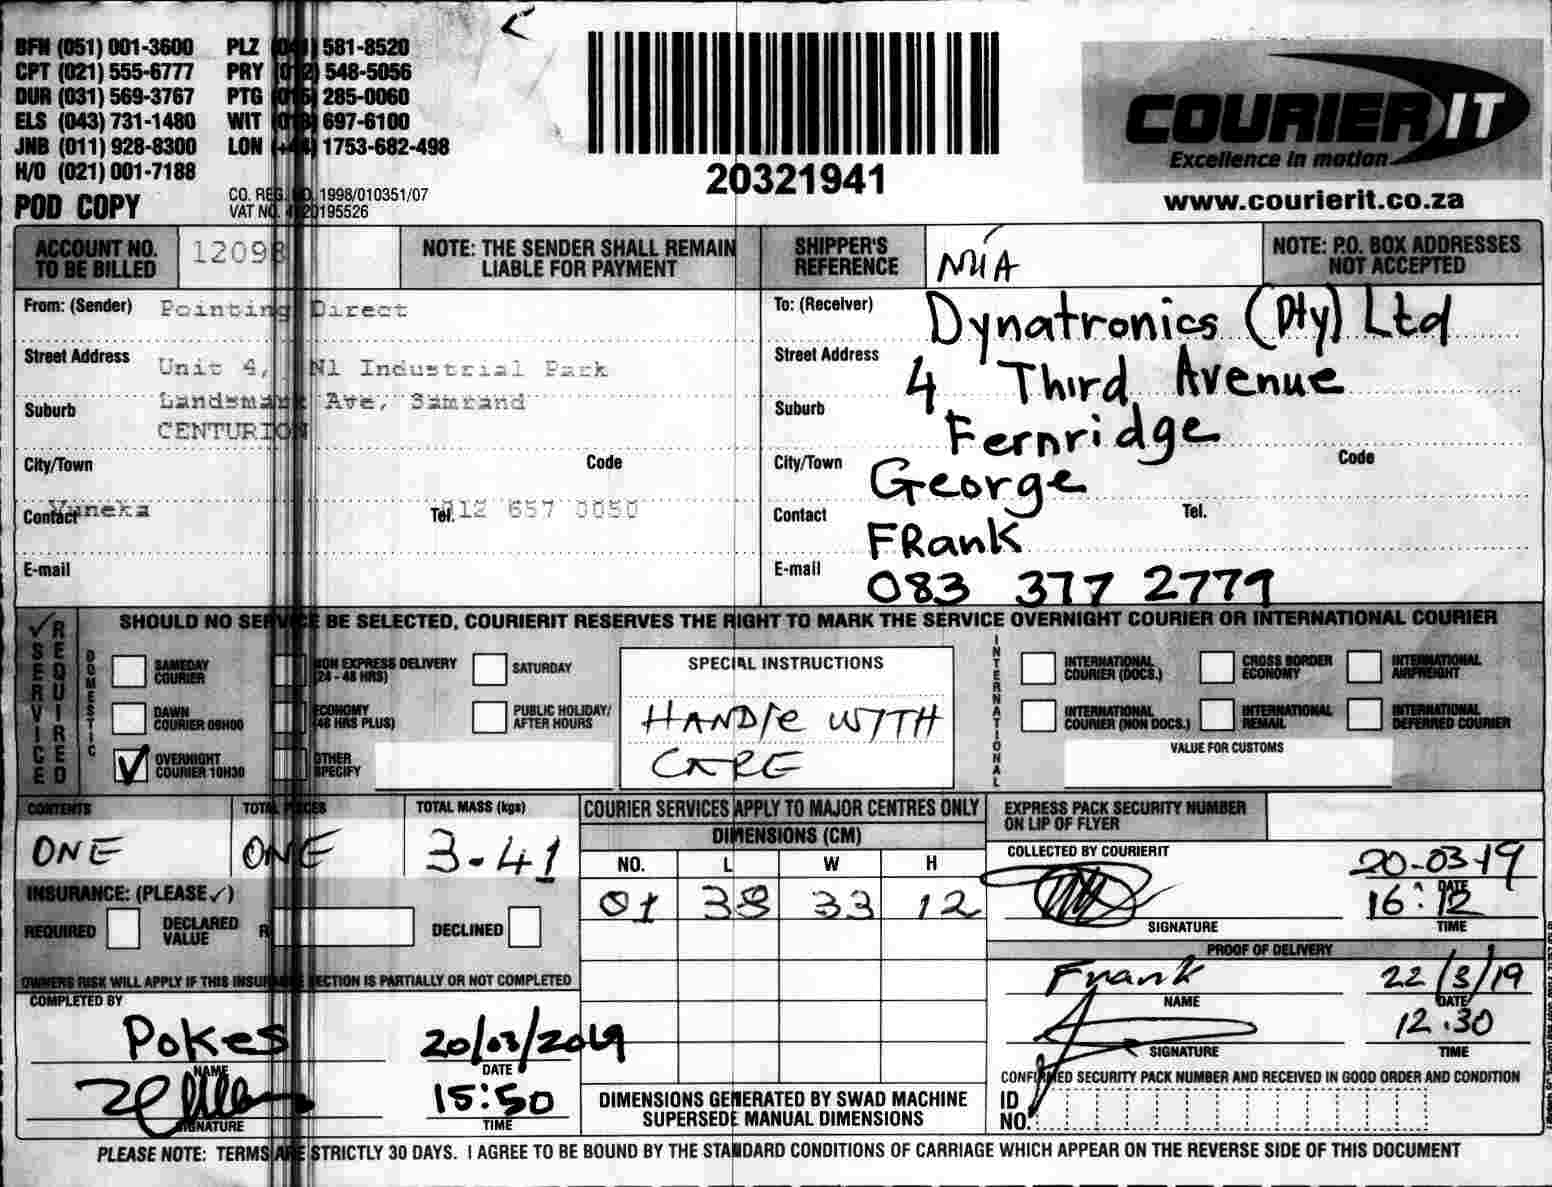 BFN (051) 001-3600 PLZ (041) 581-8520
CPT (021) 555-6777 PRY (012) 548-5056
DUR (031) 569-3767 PTG (015) 285-0060
ELS (043) 731-1480 WIT (013) 697-6100
JNB (011) 928-8300 LON (+44) 1753-682-498
H/O (021) 001-7188
POD COPY
CO. REG. NO. 1998/010351/07
VAT NO. 195526
20321941
COURIER IT
Excellence in motion
www.courierit.co.za
ACCOUNT NO. TO BE BILLED 12098
NOTE: THE SENDER SHALL REMAIN LIABLE FOR PAYMENT
SHIPPER'S REFERENCE
NOTE: P.O. BOX ADDRESSES NOT ACCEPTED
From: (Sender) Pointing Direct
Street Address Unit 4, N1 Industrial Park
Suburb Landsmark Ave, Samrand
CENTURION
City/Town Code
Contact Vuneka Tel. 012 657 0050
E-mail
To: (Receiver) Dynatronics (Pty) Ltd
Street Address 4 Third Avenue
Suburb Fernridge
City/Town George Code
Contact FRank Tel.
E-mail 083 377 2779
SERVICE REQUIRED
SHOULD NO SERVICE BE SELECTED, COURIERIT RESERVES THE RIGHT TO MARK THE SERVICE OVERNIGHT COURIER OR INTERNATIONAL COURIER
DOMESTIC
SAMEDAY COURIER
NON EXPRESS DELIVERY (24 - 48 HRS)
SATURDAY
DAWN COURIER 09H00
ECONOMY (48 HRS PLUS)
PUBLIC HOLIDAY/ AFTER HOURS
✓ OVERNIGHT COURIER 10H30
OTHER SPECIFY
SPECIAL INSTRUCTIONS
HANDle WITH
CARE
INTERNATIONAL
INTERNATIONAL COURIER (DOCS.)
CROSS BORDER ECONOMY
INTERNATIONAL AIRFREIGHT
INTERNATIONAL COURIER (NON DOCS.)
INTERNATIONAL REMAIL
INTERNATIONAL DEFERRED COURIER
VALUE FOR CUSTOMS
CONTENTS ONE
TOTAL PIECES ONE
TOTAL MASS (kgs) 3.41
INSURANCE: (PLEASE ✓)
REQUIRED DECLARED VALUE R DECLINED
OWNERS RISK WILL APPLY IF THIS INSURANCE SECTION IS PARTIALLY OR NOT COMPLETED
COMPLETED BY
Pokes 20/03/2019
NAME DATE
15:50
SIGNATURE TIME
COURIER SERVICES APPLY TO MAJOR CENTRES ONLY
DIMENSIONS (CM)
NO. L W H
01 38 33 12
DIMENSIONS GENERATED BY SWAD MACHINE SUPERSEDE MANUAL DIMENSIONS
EXPRESS PACK SECURITY NUMBER ON LIP OF FLYER
COLLECTED BY COURIERIT
20-03-19
DATE
16:12
SIGNATURE TIME
PROOF OF DELIVERY
Frank 22/3/19
NAME DATE
12.30
SIGNATURE TIME
CONFIRMED SECURITY PACK NUMBER AND RECEIVED IN GOOD ORDER AND CONDITION
ID NO.
PLEASE NOTE: TERMS ARE STRICTLY 30 DAYS. I AGREE TO BE BOUND BY THE STANDARD CONDITIONS OF CARRIAGE WHICH APPEAR ON THE REVERSE SIDE OF THIS DOCUMENT